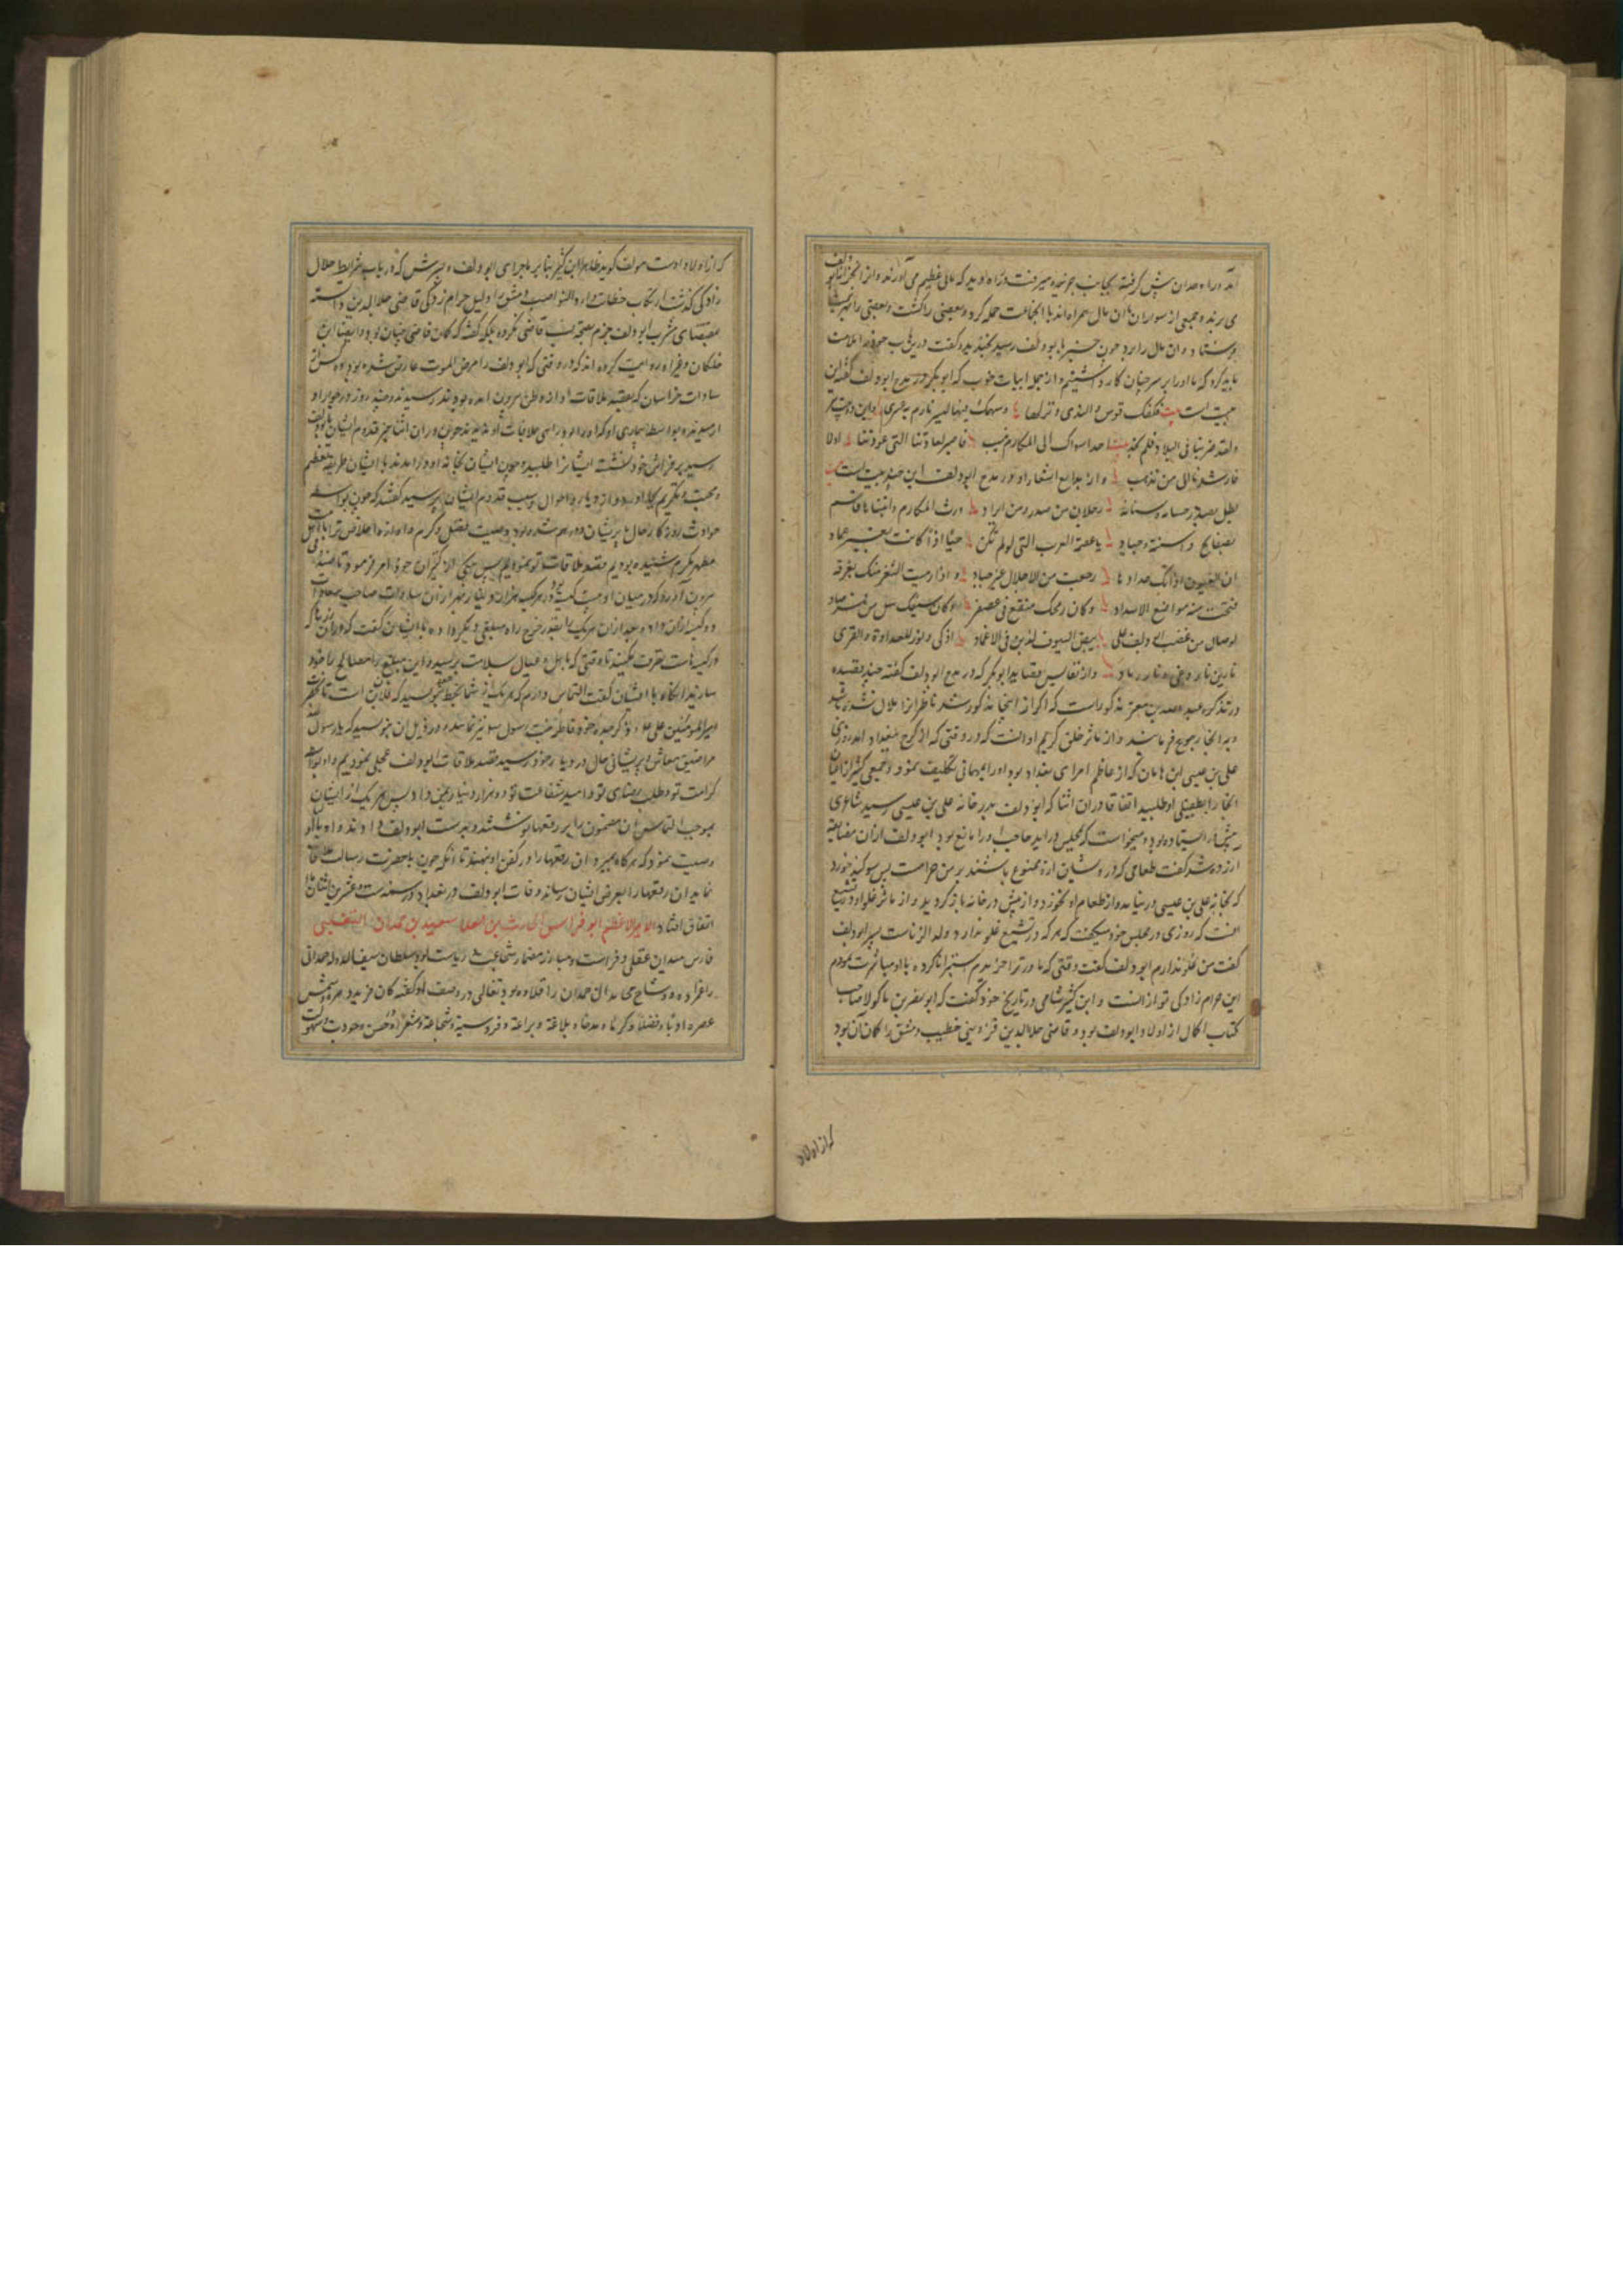 آمد و راه همدان پیش گرفته بجانب می‌رفت در راه دید که مالی عظیم می‌آورند و
می‌برند و جمعی از سواران با آن مال همراه‌اند با آن جماعت حمله کرد و بعضی را کشت و بعضی را
و آن مال را برد چون خبر بابو دلف رسید بخندید و گفت درین باب خود را ملامت
باید کرد که ما او را بر سر چنان کار داشتیم و از جمله ابیات خوب که ابو بکر در مدح ابو دلف گفته این
بیت است بیت فکفک قوس والندی وتر لها وسهمک فیها الیسر فارم به عسری و این دو بیت
ولقد ضربنا فی البلاد فلم نجد احدا سواک الی المکارم ینسب فاصبر لعادتنا التی عودتنا او لا
فارشدنا الی من نذهب و از بدایع اشعار او در مدح ابو دلف این چند بیت است
بطل بصدر حسامه وسنانه رجلان من صدر ومن ایراد ورث المکارم وابتناها قاسم
بصفایح واسنة وجیاد یا عصمة العرب التی لو لم تکن حیا اذا کانت بغیر عماد
ان العیون اذا رأتک حدادها رجعت من الاجلال غیر حداد و اذا رمیت الثغر منک بغرفه
فتحت منه مواضع الاسداد وکان رمحک منقع فی عصفر وکان سیفک سل من فرصاد
لو صال من غضب ابو دلف علی بیض السیوف لذبن فی الاغماد اذکی واوقد للعداوة والقری
نارین نار وغی و نار رماد و از نفایس قصاید ابو بکر که در مدح ابو دلف گفته چند قصیده
در تذکره عبد الله بن معتز مذکور است که اگر از اینجا مذکور شد ناظر از آن ملال شده باشد
به آنجا رجوع فرمایند و از مآثر خلق کریم او آنست که در وقتی که از کرج ببغداد آمد روزی
علی بن عیسی بن ماهان که از عاظم امرای بغداد بود او را بمهمانی تکلیف نمود و جمعی کثیر از اعیان
آنجا را بطفیل او طلبید اتفاقا در آن اثنا که ابو دلف بدر خانه علی بن عیسی رسید شاعری
ایستاده بود و میخواست که بمجلس درآید حاجب او را مانع بود ابو دلف از آن مضایقه
آزرده شد گفت طعامی که درویشان از او ممنوع باشند بر من حرامست پس سوگند خورد
که بخانه علی بن عیسی در نیاید و از طعام او نخورد و از پیش در خانه بازگردید و از مآثر غلو او در تشیع
آنست که روزی در مجلس خود میگفت که هر که در تشیع غلو ندارد ولد الزناست پسر ابو دلف
گفت من غلو ندارم ابو دلف گفت وقتی که مادر ترا خریدم استبرا ناکرده با او مباشرت نمودم
این حرام زادگی تو از آنست و ابن کثیر شامی در تاریخ خود گفت که ابو نصر بن ماکولا صاحب
کتاب اکمال از اولاد ابو دلف بود و قاضی جلال الدین قزوینی خطیب دمشق را گمان آن بود
که از اولاد
که از اولاد اوست مولف گوید ظاهرا ابن کثیر بنا بر ماجرای ابو دلف و پسرش که در باب شرایط حلال
زادگی گذشت ارتکاب دار النواصب دمشق را دلیل حرام زادگی قاضی جلال الدین دانسته
بمقتضای مشرب ابو دلف جزم بصحت نسب قاضی نکرده بلکه گفته که گمان قاضی چنان بود و ایضا ابن
خلکان و غیر او روایت کرده‌اند که در وقتی که ابو دلف را مرض الموت عارض شده بود ده کس از
سادات خراسان که بقصد ملاقات او از وطن بیرون آمده بودند رسیدند و چند روز در جوار او
و بواسطه بیماری او کسی او را بر ملاقات او چون در آن اثنا خبر قدوم ایشان بابو دلف
رسید بر فراش خود نشست ایشان را طلبید و چون ایشان بخانه او درآمدند با ایشان طریقه تعظیم
و محبت و تکریم بجا آورد و از دیار و احوال و سبب قدوم ایشان پرسید گفتند که چون بواسطه
حوادث روزگار حال ما پریشان و درهم شده بود و صیت فضل و کرم و آوازه اخلاص ترا باهل بیت
مطهر مکرر شنیده بودیم بقصد ملاقات تو نمودیم پس یکی از کنیزان خود را امر فرمود تا صندوقی
بیرون آورد که در میان او بیست کیسه بود در هر کیسه هزار دینار زر بهر از آن سادات صاحب سعادت
دو کیسه از آن داد و بعد از آن هر یک را بقدر خرج راه مبلغی دیگر داد و با ایشان گفت که درین زرها که
در کیسه‌هاست تصرف مکنید تا وقتی که باهل و عیال سلامت برسید و این مبلغ را مصالح راه خود
سازید آنگاه با ایشان گفت التماس دارم که هر یک از شما بخط خود بنویسید که فلان بن فلان است تا بحضرت
امیرالمؤمنین علی علیه و ذکر جده خود فاطمه بنت رسول الله نیز نماید و در ذیل آن بنویسید که یا رسول الله
مرا ضیق معاش و پریشانی حال در دیار خود رسید بقصد ملاقات ابو دلف عجلی نمودیم و او بواسطه
کرامت تو و طلب رضای تو و امید شفاعت تو دو هزار دینار بمن داد پس هر یک از ایشان
بموجب التماس آن مضمون را بر رقعها نوشتند و بدست ابو دلف دادند و او با
وصیت نمود که هرگاه بمیرد آن رقعها را در کفن او نهند تا آنکه چون با حضرت رسالت ملاقات
نماید آن رقعها را بعرض ایشان رساند وفات ابو دلف در بغداد در سنه ست و عشرین و مائتین
اتفاق افتاد الامیر الاعظم ابو فراس الحارث بن ابی العلا سعید بن حمدان التغلبی
فارس میدان عقل و فراست و مبارز مضمار شجاعت و ریاست بود سلطان سیف الدوله حمدانی
را عمزاده و وشاح محامد آل حمدان را قلاده بود ثعالبی در وصف او گفته کان فرید دهره وشمس
عصره ادبا وفضلا وکرما ومجدا وبلاغة وبراعة وفروسیة وشجاعة وشعره حسن وجودت وسهولت